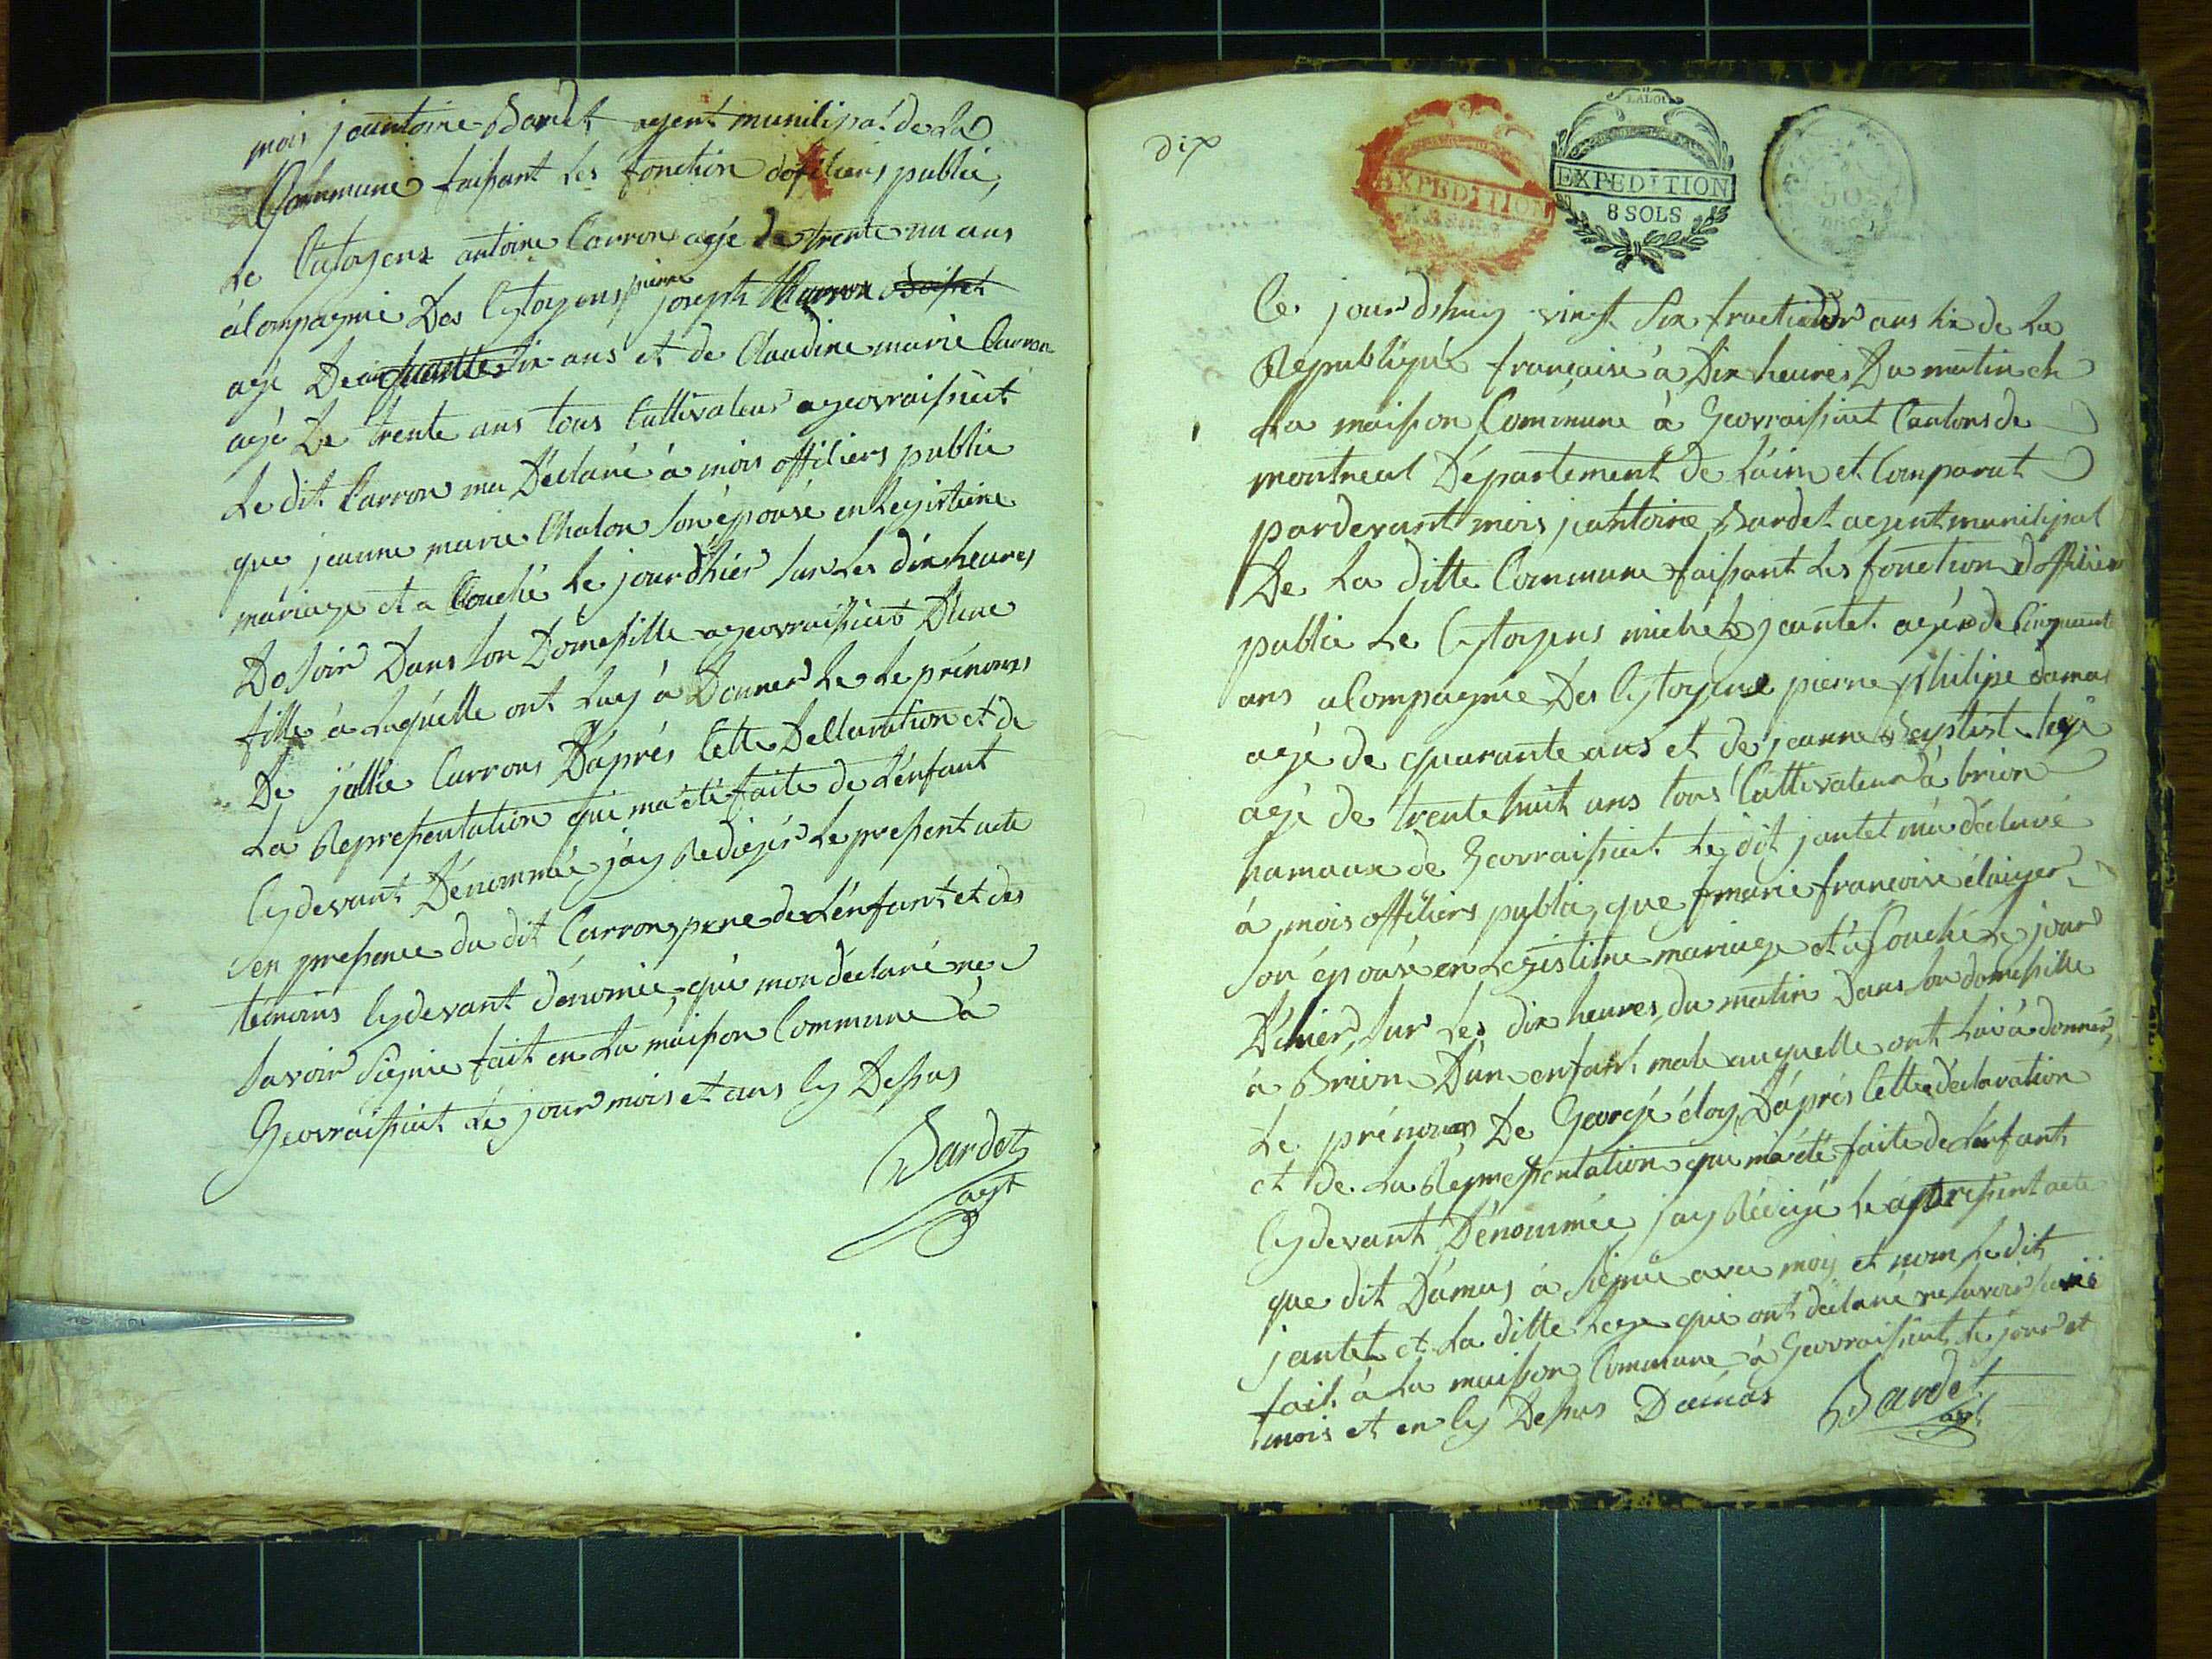 mois jeantoine Bardet agent munilipal de La
Commune faisant les fonction dofiliers public,
Le Citoyens antoine Carron agé de trente un ans
alompagnie Des Cytoyens pierre joseph Carron
agé De Six ans et de Claudine marie Carron
agé De trente ans tous Cultivateur ageovraissiat
Le dit Carron ma Déclaré à mois offiliers public
que jeanne marie Chalon Son épouse en Legistime
mariage et a Couché Le jour dhier Sur Les dix heures
Do Soir Dans Son Domesille ageovraissiat Dune
fille à Laquelle ont Luy à Donner Le Le prénoms
De jullie Carrons Daprés Cette Dellaration et de
La Representation qui ma été faite de Lénfant
Cydevant Dénommée jay Redigér Le present acte
en presence du dit Carrons pere de Lénfant et des
témoins Cydevant dénomié qui mon déclaré ne
Savoir Signie fait en La maison Commune à
Geovraissiat Le jour mois et ans Cy Dessus
Bardet
agt
Dix
EXPEDITION
EXPEDITION
8 SOLS
Ce jourdhuy vingt Six fructidor ans Six de La
Republique française à Dix heures Du matin en
La maison Commune à Geovraissiat Cantons de
montreal Département de Láin et Comparut
pardevant mois jeantoine Bardet agent munilipal
De La ditte Commune faisant Les fonction dofficier
public Le Cytoyens michel jantet agér de Cinquante
ans alompagnie Des Cytoyens pierre philipe damas
agé de quarante ans et de jeanne Baptist Legé
agé de trente huit ans tous Cultivateur à brion
hamaux de Geovraissiat Le dit jantet má déclaré
à mois offiliers public que marie francoise élaiger
Son épouse en Legistime mariage et à Couché Le jour
D'hier, Sur Les dix heures du matin Dans Son domesille
à Brion Dun enfant male auquelle ont Lui à donner
Le prénoms De Georgé éloy Dáprés Cette déclaration
et de La Representation qui má été faite de Lénfant
Cydevant Dénommée jay Rédigé le present acte
que dit Damas à Signié avec moy et nom Le dit
jantet et La ditte Lege qui ont déclaré ne Savoir
fait à La maison Commune à Geovraissiat Le jour et
mois et en Cy Dessus Damas Bardet
agt